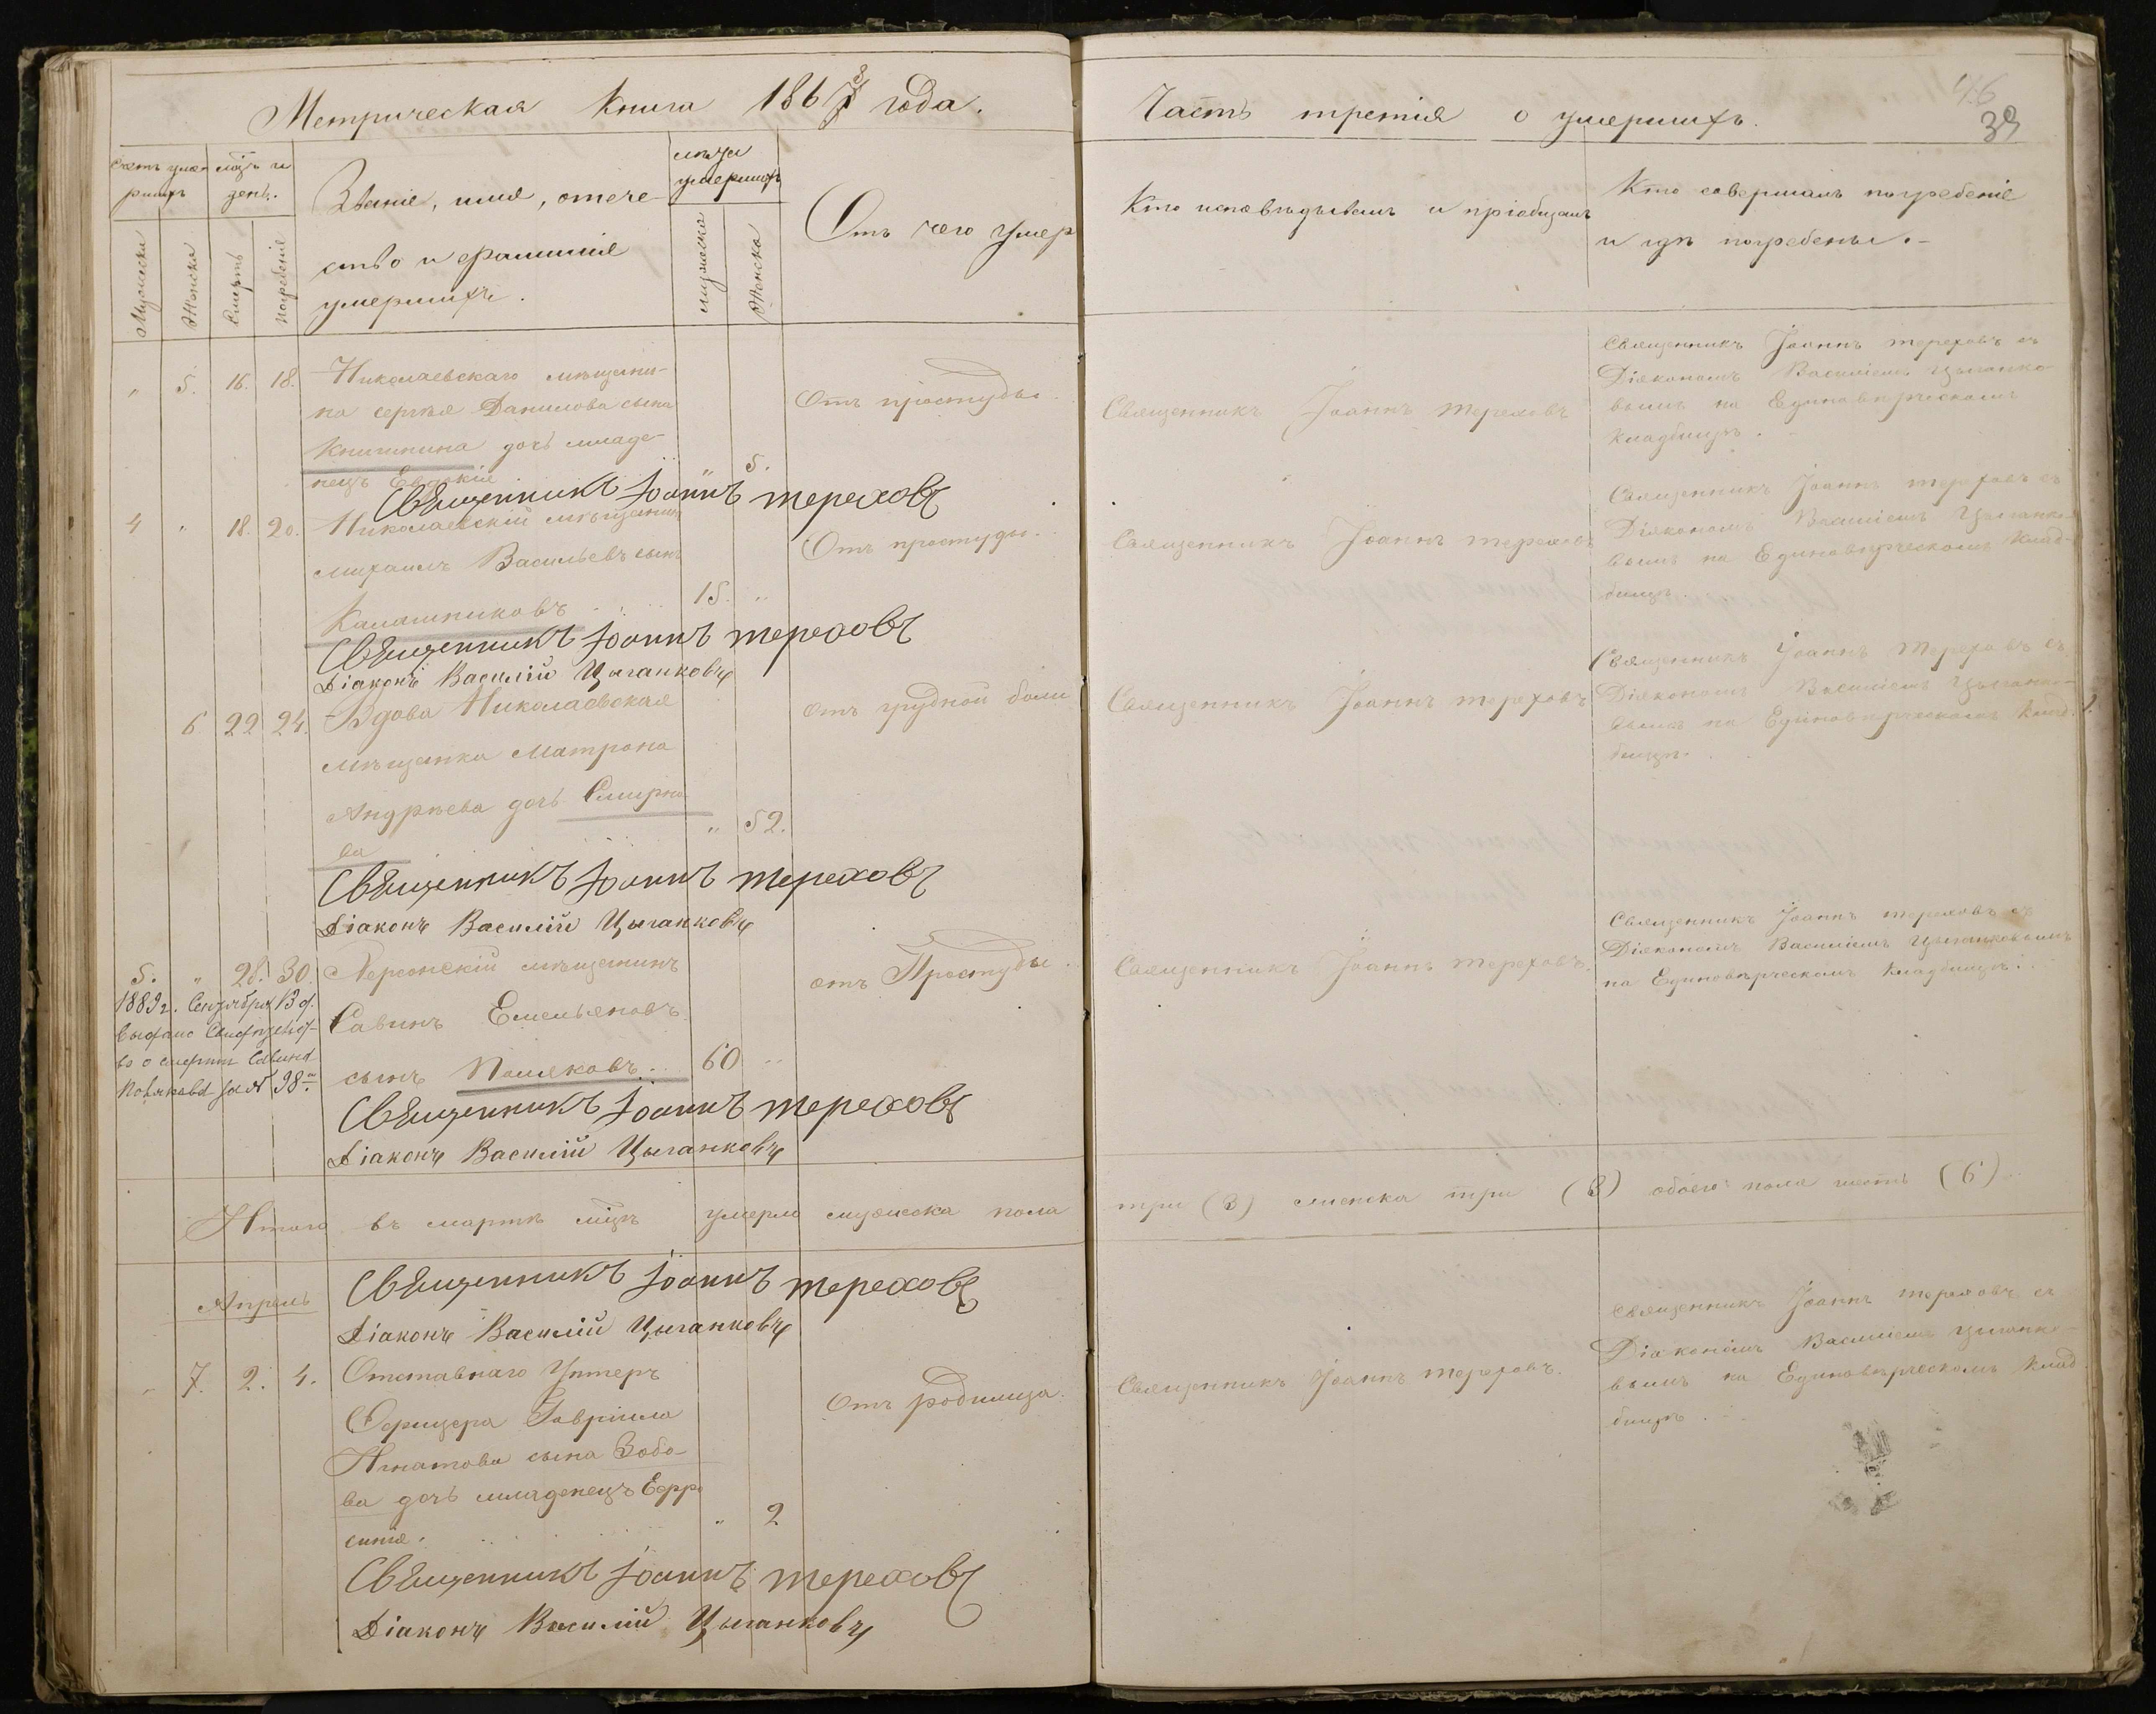 Метрическая Книга 1868 года.
Счетъ уме-
ршихъ
мѣсяцъ и
день.
Званіе, имя, отече-
ство и фамилія
умершихъ.
лѣта
умершихъ
Отъ чего умер
Мужеска
Женска
Смерть
Погребеніе
мужеска
Женска
" 5. 16. 18. Николаевскаго мѣщани-
на сергѣя Данилова сына
Книшкина дочь младе-
нецъ Евдокія " 5.
Отъ простуды.
Священникъ Іоаннъ тереховъ
4 " 18. 20. Николаевскій мѣщанинъ
михаилъ Васильевъ сынъ
Калашниковъ 15. "
Отъ простуды.
Священникъ Іоаннъ тереховъ
Діаконъ Василій Цыганковъ
6 22 24. Вдова Николаевская
мѣщанка Матрона
Андрѣева дочь Смирно-
ва " 52.
отъ грудной боли
Священникъ Іоаннъ тереховъ
Діаконъ Василій Цыганковъ
5. " 28. 30. Херсонскій мѣщанинъ
Савинъ Емельяновъ
сынъ Поляковъ 60 "
отъ Простуды.
1889 г. Сентября 13 д.
Выдано Свидѣтельст-
во о смерти Савина
Полякова за № 98
Священникъ Іоаннъ тереховъ
Діаконъ Василій Цыганковъ
Итого въ мартѣ мцѣ умерло мужеска пола
Апрель
Священникъ Іоаннъ тереховъ
Діаконъ Василій Цыганковъ
" 7. 2. 4. Отставнаго Унтеръ
Офицера Гавріила
Игнатова сына Зобо-
ва дочь младенецъ Ефро
синія. " 2
Отъ родимца.
Священникъ Іоаннъ тереховъ
Діаконъ Василій Цыганковъ
Часть третія о умершихъ.
46
39
Кто исповѣдывалъ и пріобщалъ
Кто совершалъ погребеніе
и гдѣ погребены.
Священникъ Іоаннъ тереховъ
Священникъ Іоаннъ тереховъ съ
Діакономъ Василіемъ Цыганко-
вымъ на Единовѣрческомъ
кладбищѣ.
Священникъ Іоаннъ тереховъ
Священникъ Іоаннъ тереховъ съ
Діакономъ Василіемъ Цыганко-
вымъ на Единовѣрческомъ Клад-
бищѣ.
Священникъ Іоаннъ тереховъ
Священникъ Іоаннъ тереховъ съ
Діакономъ Василіемъ Цыганко-
вымъ на Единовѣрческомъ Клад-
бищѣ.
Священникъ Іоаннъ тереховъ.
Священникъ Іоаннъ тереховъ съ
Діакономъ Василіемъ Цыганковымъ
на Единовѣрческомъ Кладбищѣ.
три (3) женска три (3) обоего пола шесть (6).
Священникъ Іоаннъ тереховъ.
Священникъ Іоаннъ тереховъ съ
Діакономъ Василіемъ Цыганко-
вымъ на Единовѣрческомъ Клад
бищѣ.